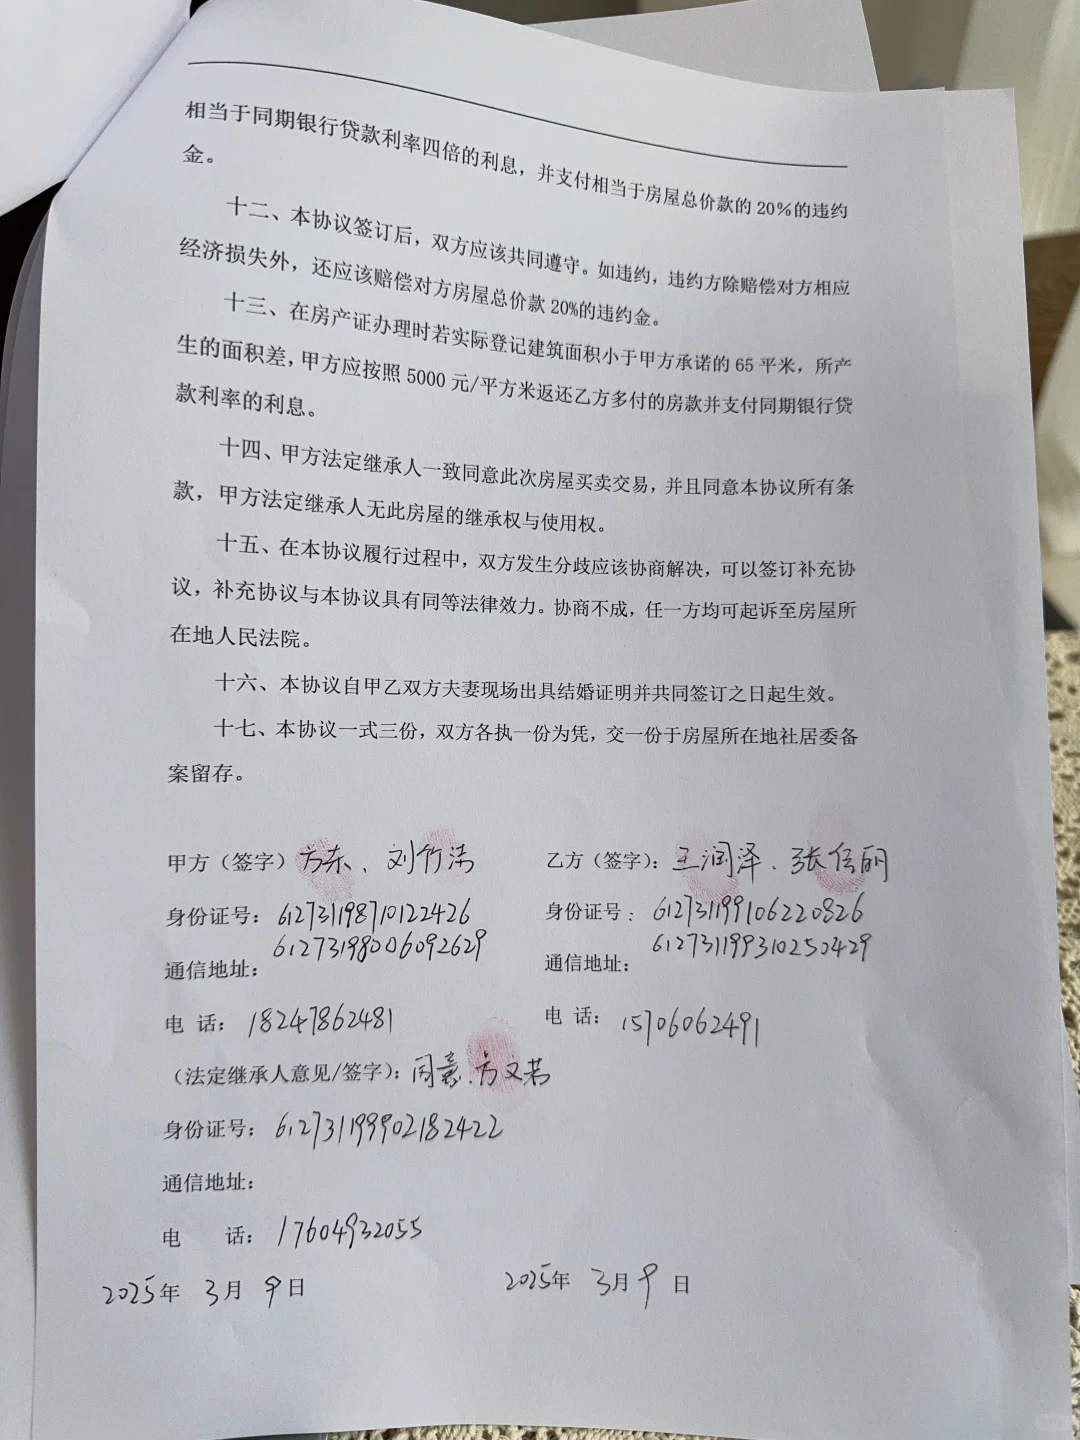 相当于同期银行贷款利率四倍的利息，并支付相当于房屋总价款的20%的违约
金。
十二、本协议签订后，双方应该共同遵守。如违约，违约方除赔偿对方相应
经济损失外，还应该赔偿对方房屋总价款20%的违约金。
十三、在房产证办理时若实际登记建筑面积小于甲方承诺的65平米，所产
生的面积差，甲方应按照5000元/平方米返还乙方多付的房款并支付同期银行贷
款利率的利息。
十四、甲方法定继承人一致同意此次房屋买卖交易，并且同意本协议所有条
款，甲方法定继承人无此房屋的继承权与使用权。
十五、在本协议履行过程中，双方发生分歧应该协商解决，可以签订补充协
议，补充协议与本协议具有同等法律效力。协商不成，任一方均可起诉至房屋所
在地人民法院。
十六、本协议自甲乙双方夫妻现场出具结婚证明并共同签订之日起生效。
十七、本协议一式三份，双方各执一份为凭，交一份于房屋所在地社居委备
案留存。
甲方（签字）方东、刘竹清 乙方（签字）：王润泽、张倍丽
身份证号：612731198710122426 身份证号：612731199106220826
612731198006092629 612731199310250429
通信地址： 通信地址：
电 话：18247862481 电 话：15706062491
（法定继承人意见/签字）：同意、方文若
身份证号：612731199902182422
通信地址：
电 话：17604932055
2025年 3月 9日 2025年 3月 9日